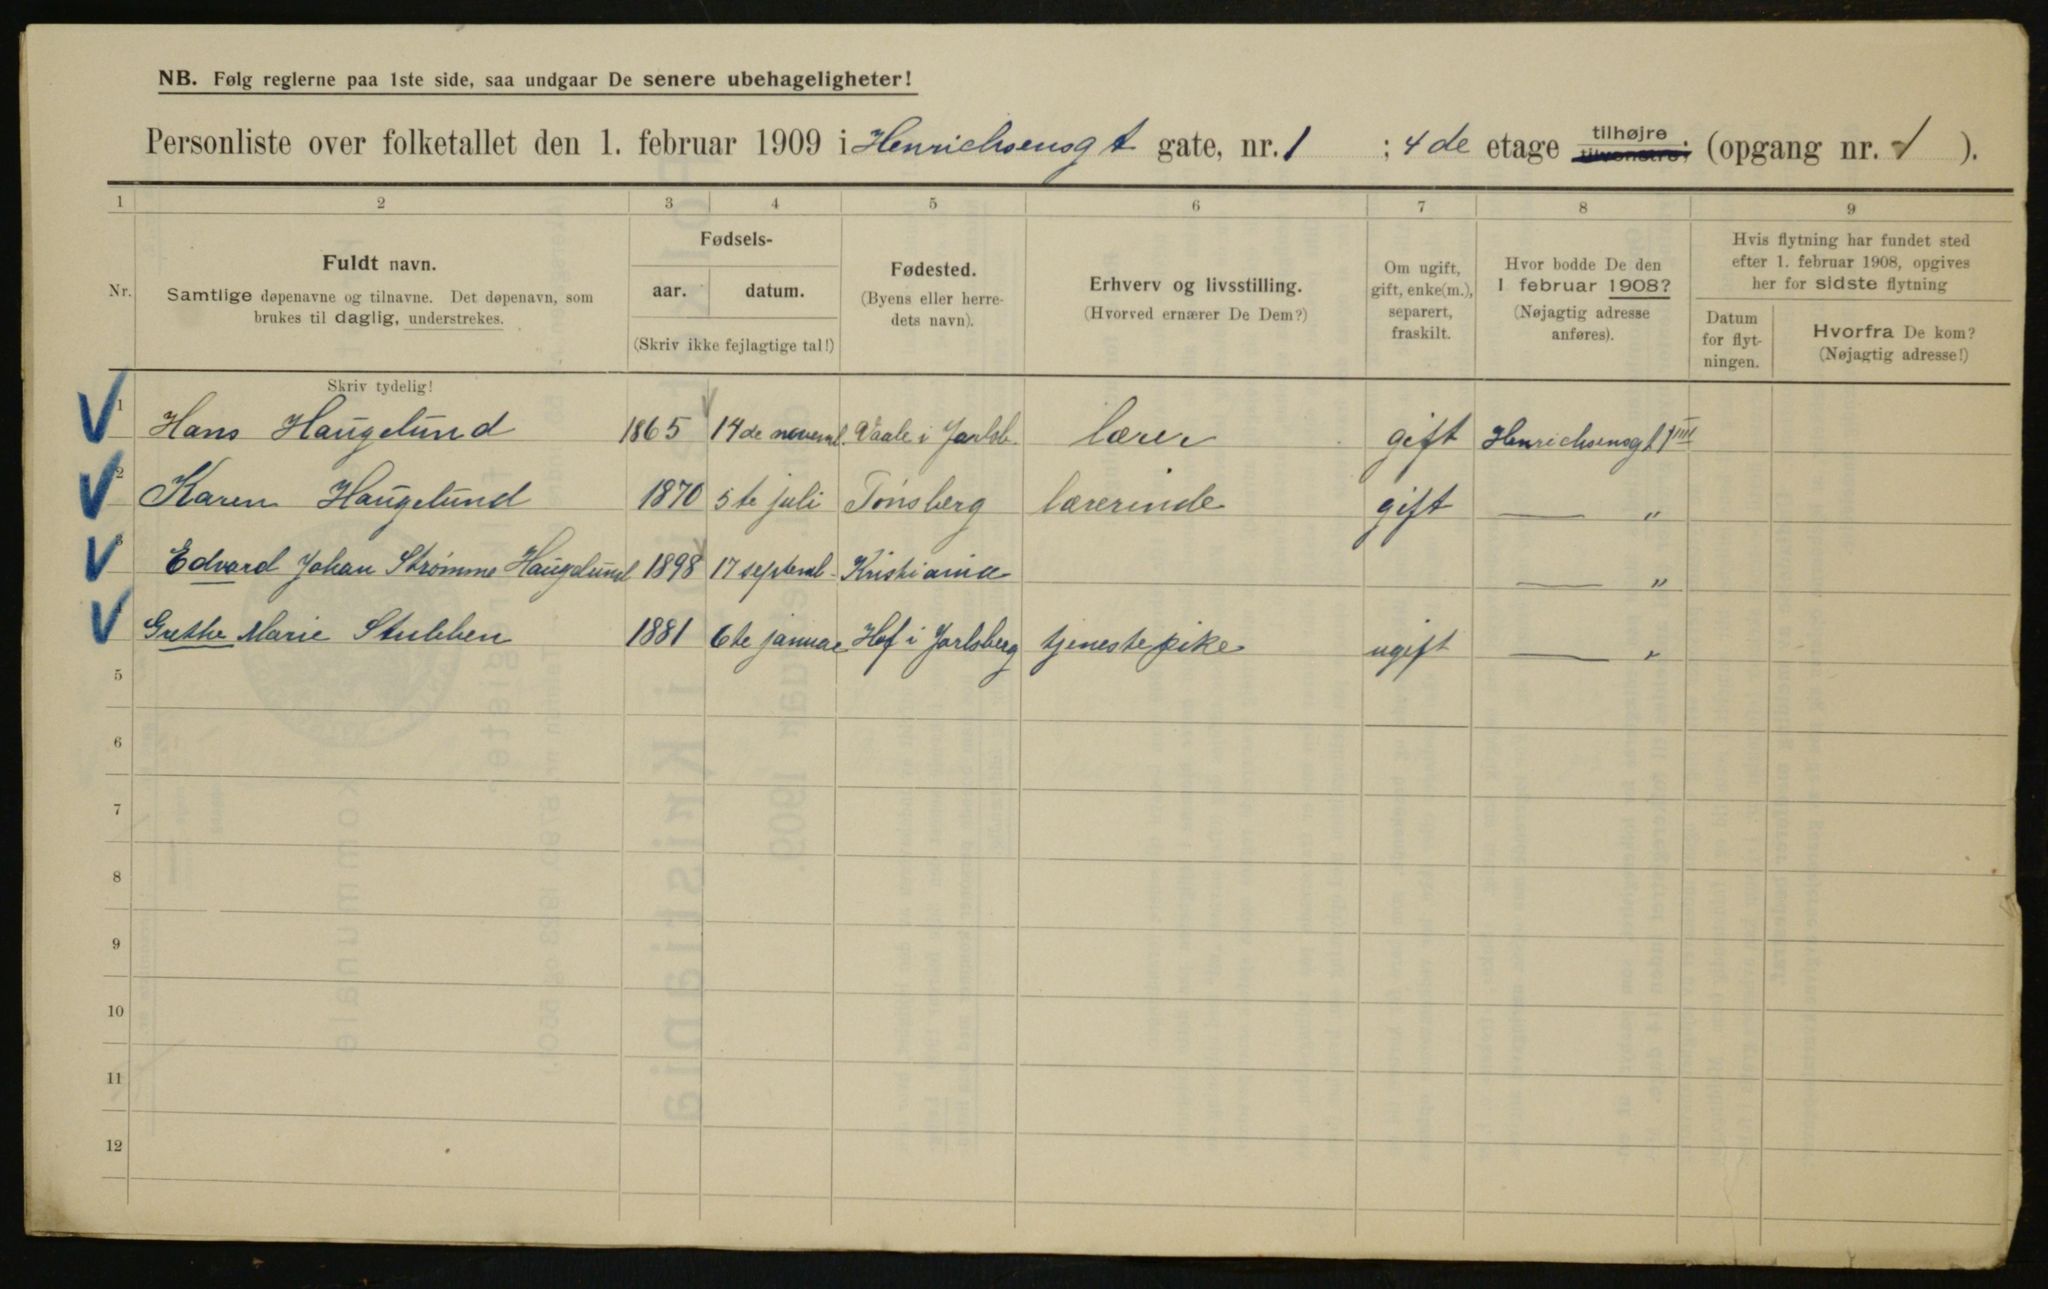 NB. Følg reglerne paa 1ste side, saa undgaar De senere ubehageligheter!
Personliste over folketallet den 1. februar 1909 i Henrichsensgt gate, nr. 1 ; 4de etage tilhøjre tilvenstre; (opgang nr. 1 ).
1 2 3 4 5 6 7 8 9
Nr.
Fuldt navn.
Samtlige døpenavne og tilnavne. Det døpenavn, som
brukes til daglig, understrekes.
Skriv tydelig!
Fødsels-
aar. datum.
(Skriv ikke fejlagtige tal!)
Fødested.
(Byens eller herre-
dets navn).
Erhverv og livsstilling.
(Hvorved ernærer De Dem?)
Om ugift,
gift, enke(m.),
separert,
fraskilt.
Hvor bodde De den
1 februar 1908?
(Nøjagtig adresse
anføres).
Hvis flytning har fundet sted
efter 1. februar 1908, opgives
her for sidste flytning
Datum
for flyt-
ningen.
Hvorfra De kom?
(Nøjagtig adresse!)
1 Hans Haugelund 1865 14de novemb. Vaale i Jarlsb. lærer gift Henrichsensgt 1 IIII
2 Karen Haugelund 1870 5te juli Tønsberg lærerinde gift — "
3 Edvard Johan Strømme Haugelund 1898 17 septemb. Kristiania — "
Grethe Marie Stubben 1881 6te januar Hof i Jarlsberg tjenestepike ugift — "
5
6
7
8
9
10
11
12